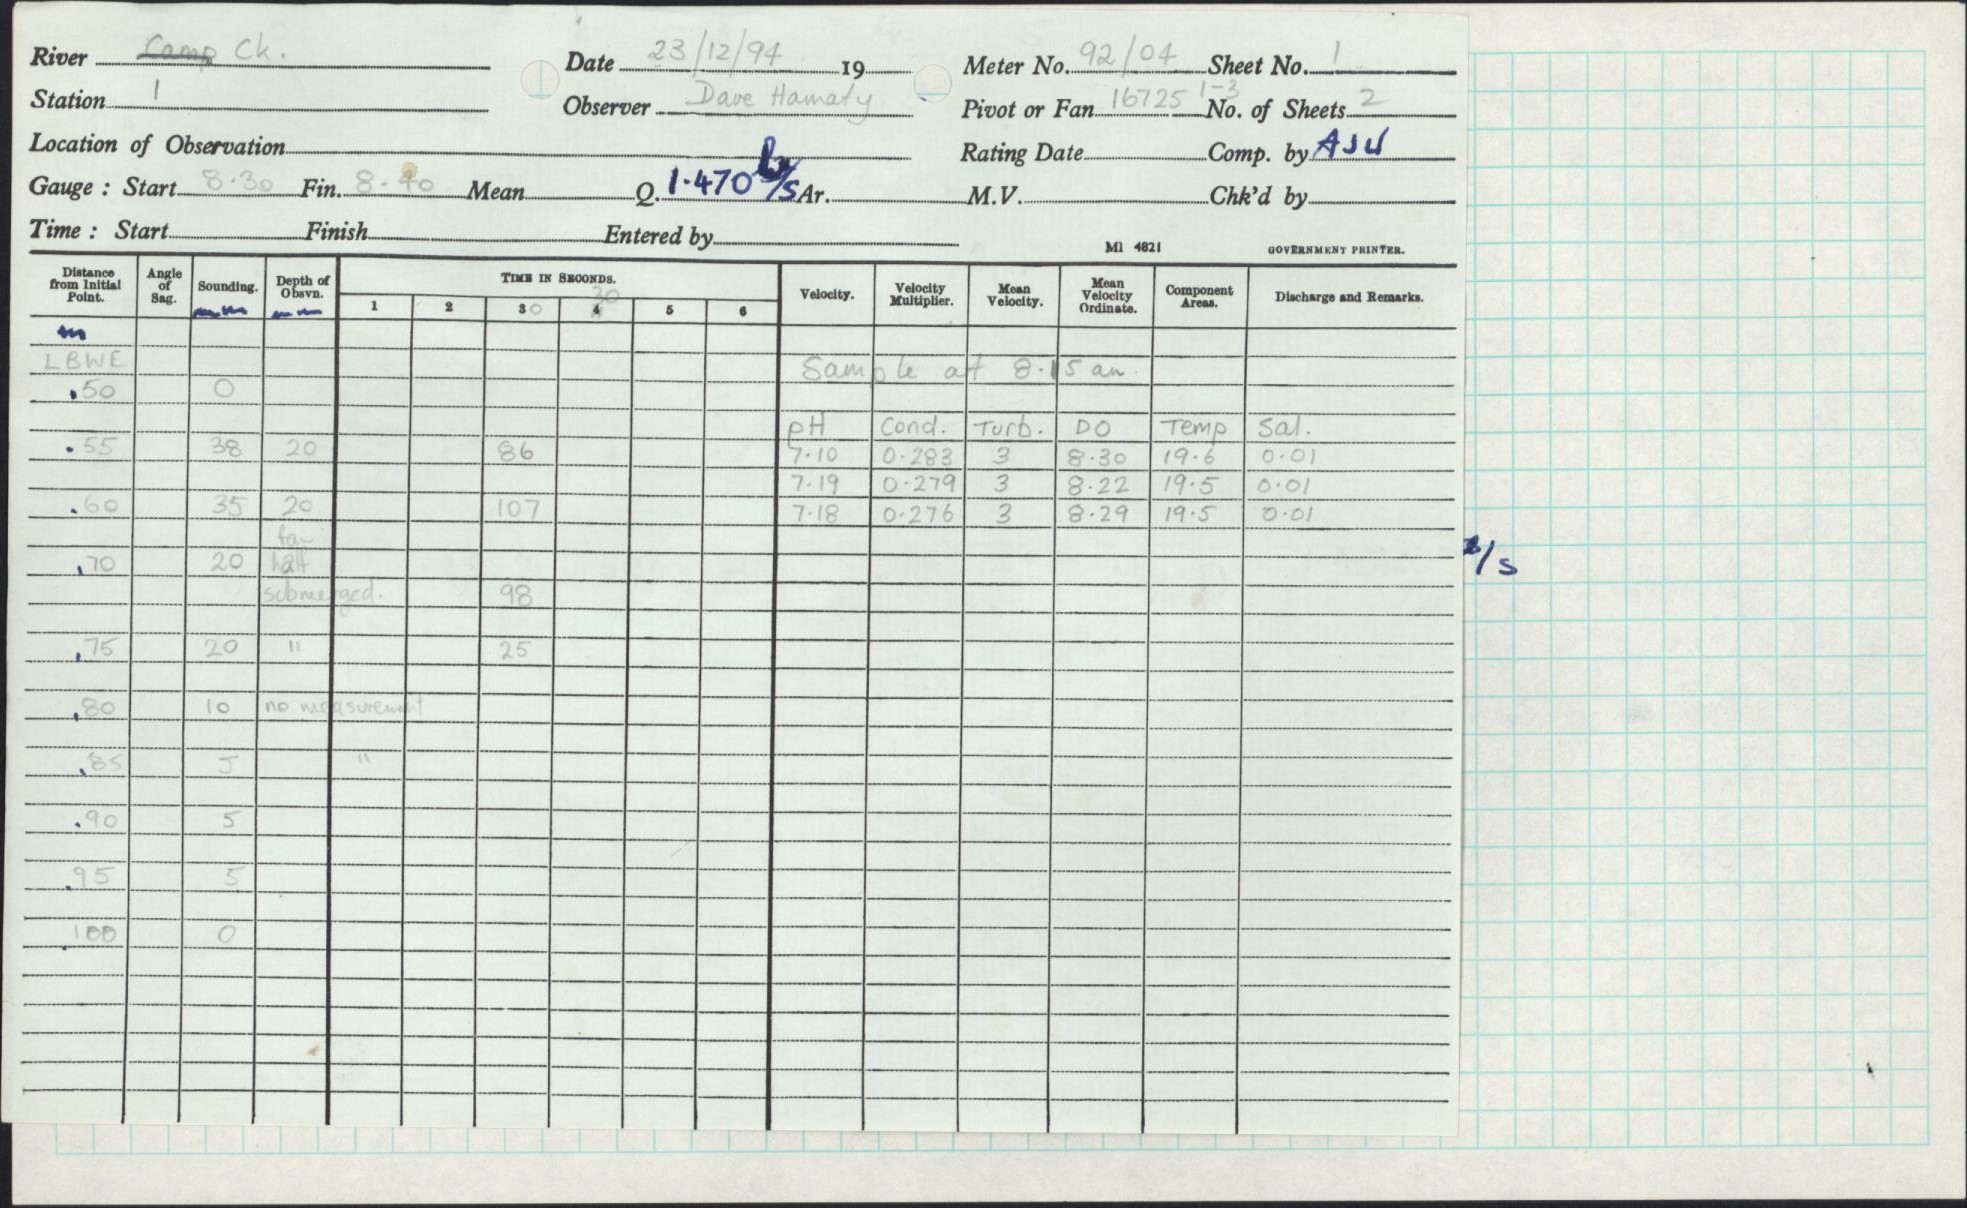 River Camp Ck. Date 23/12/94 19 Meter No. 92/04 Sheet No. 1
Station 1 Observer Dave Hamaty Pivot or Fan 16725 1-3 No. of Sheets 2
Location of Observation Rating Date Comp. by AJH
Gauge : Start 8.30 Fin. 8.40 Mean Q. 1.470 l/s Ar. M.V. Chk'd by
Time : Start Finish Entered by MI 4821 GOVERNMENT PRINTER.
Distance from Initial Point. Angle of Sag. Sounding. Depth of Obsvn. TIME IN SECONDS. Velocity. Velocity Multiplier. Mean Velocity. Mean Velocity Ordinate. Component Areas. Discharge and Remarks.
30
1 2 30 4 5 6
m mm mm
LBWE Sample at 8.15 am.
.50 0
pH Cond. Turb. DO Temp Sal.
.55 38 20 86 7.10 0.283 3 8.30 19.6 0.01
7.19 0.279 3 8.22 19.5 0.01
.60 35 20 107 7.18 0.276 3 8.29 19.5 0.01
fan
.70 20 half
submerged. 98
/s
.75 20 " 25
.80 10 no measurement
.85 5 "
.90 5
.95 5
.100 0